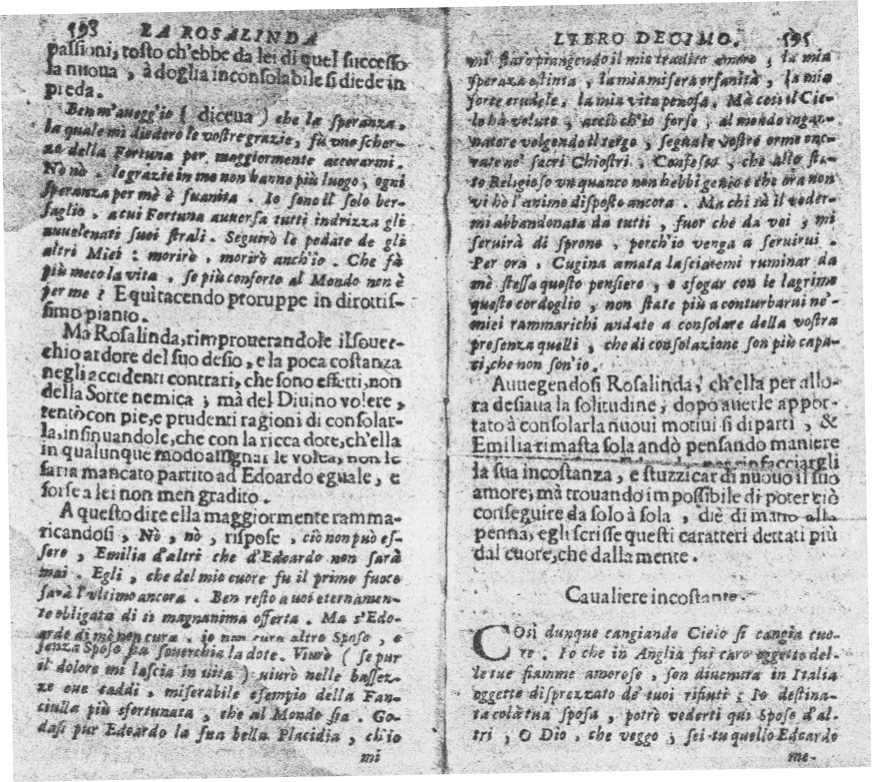 598 LA ROSALINDA
passioni, tosto ch'ebbe da lei di quel successo
la nuoua, à doglia inconsolabile si diede in
preda.
Ben m'aueggio ( diceua ) che la speranza,
la quale mi diedero le vostre grazie, fù vno scher-
zo della Fortuna per maggiormente accorarmi.
Nò nò, le grazie in me non hanno più luogo; ogni
speranza per mè è suanita. Io sono il solo ber-
saglio, a cui Fortuna auuersa tutti indrizza gli
auuelenati suoi strali. Seguirò le pedate de gli
altri Miei: morirò, morirò anch'io. Che fà
più meco la vita, se più conforto al Mondo non è
per me? E quì tacendo proruppe in dirottis-
simo pianto.
Ma Rosalinda, rimprouerandole il souer-
chio ardore del suo desio, e la poca costanza
negli accidenti contrari, che sono effetti, non
della Sorte nemica; mà del Diuino volere,
tentò con pie, e prudenti ragioni di consolar-
la, insinuandole, che con la ricca dote, ch'ella
in qualunque modo assignar le volea, non le
saria mancato partito ad Edoardo eguale, e
forse a lei non men gradito.
A questo dire ella maggiormente ramma-
ricandosi, Nò, nò, rispose, ciò non può es-
sere, Emilia d'altri che d'Edoardo non sarà
mai. Egli, che del mio cuore fu il primo fuoco
sarà l'vltimo ancora. Ben resto a uoi eternamen-
te obligata di sì magnanima offerta. Ma s'Edo-
ardo di mè non cura, io non curo altro Sposo, e
senza Sposo fia souerchia la dote. Viurò ( se pur
il dolore mi lascia in uita ) uiurò nelle bassez-
ze oue caddi, miserabile esempio della Fan-
ciulla più sfortunata, che al Mondo sia. Go-
dasi pur Edoardo la sua bella Placidia, ch'io
mi
LIBRO DECIMO. 595
mi starò piangendo il mio tradito amore, la mia
speraza estinta, la mia misera orfanità, la mia
sorte crudele, la mia vita penosa. Mà così il Cie-
lo hà voluto, acciò ch'io forse, al mondo ingan-
natore volgendo il tergo, segua le vostre orme ono-
rate ne' sacri Chiostri. Confesso, che allo sta-
to Religioso vnquanco non hebbi genio e che ora non
vi hò l'animo disposto ancora. Ma chi sà il veder-
mi abbandonata da tutti, fuor che da voi, mi
seruirà di sprone, perch'io venga a seruirui.
Per ora, Cugina amata lasciatemi ruminar da
mè stessa questo pensiero, e sfogar con le lagrime
questo cordoglio, non state più a conturbarui ne'
miei rammarichi andate a consolare della vostra
presenza quelli, che di consolazione son più capa-
ci, che non son'io.
Auuegendosi Rosalinda, ch'ella per allo-
ra desiaua la solitudine, dopo auerle appor-
tato à consolarla nuoui motiui si dipartì, &
Emilia rimasta sola andò pensando maniere
rinfacciargli
la sua incostanza, e stuzzicar di nuouo il suo
amore; mà trouando impossibile di poter ciò
conseguire da solo à sola, diè di mano alla
penna, egli scrisse questi caratteri dettati più
dal cuore, che dalla mente.
Caualiere incostante.
COsì dunque cangiando Cielo si cangia cuo-
re. Io che in Anglia fui caro oggetto del-
le tue fiamme amorose, son diuenuta in Italia
oggetto disprezzato de' tuoi rifiuti; Io destina-
ta colà tua sposa, potrò vederti quì Sposo d'al-
tri, O Dio, che veggo; sei tu quello Edoardo
me-